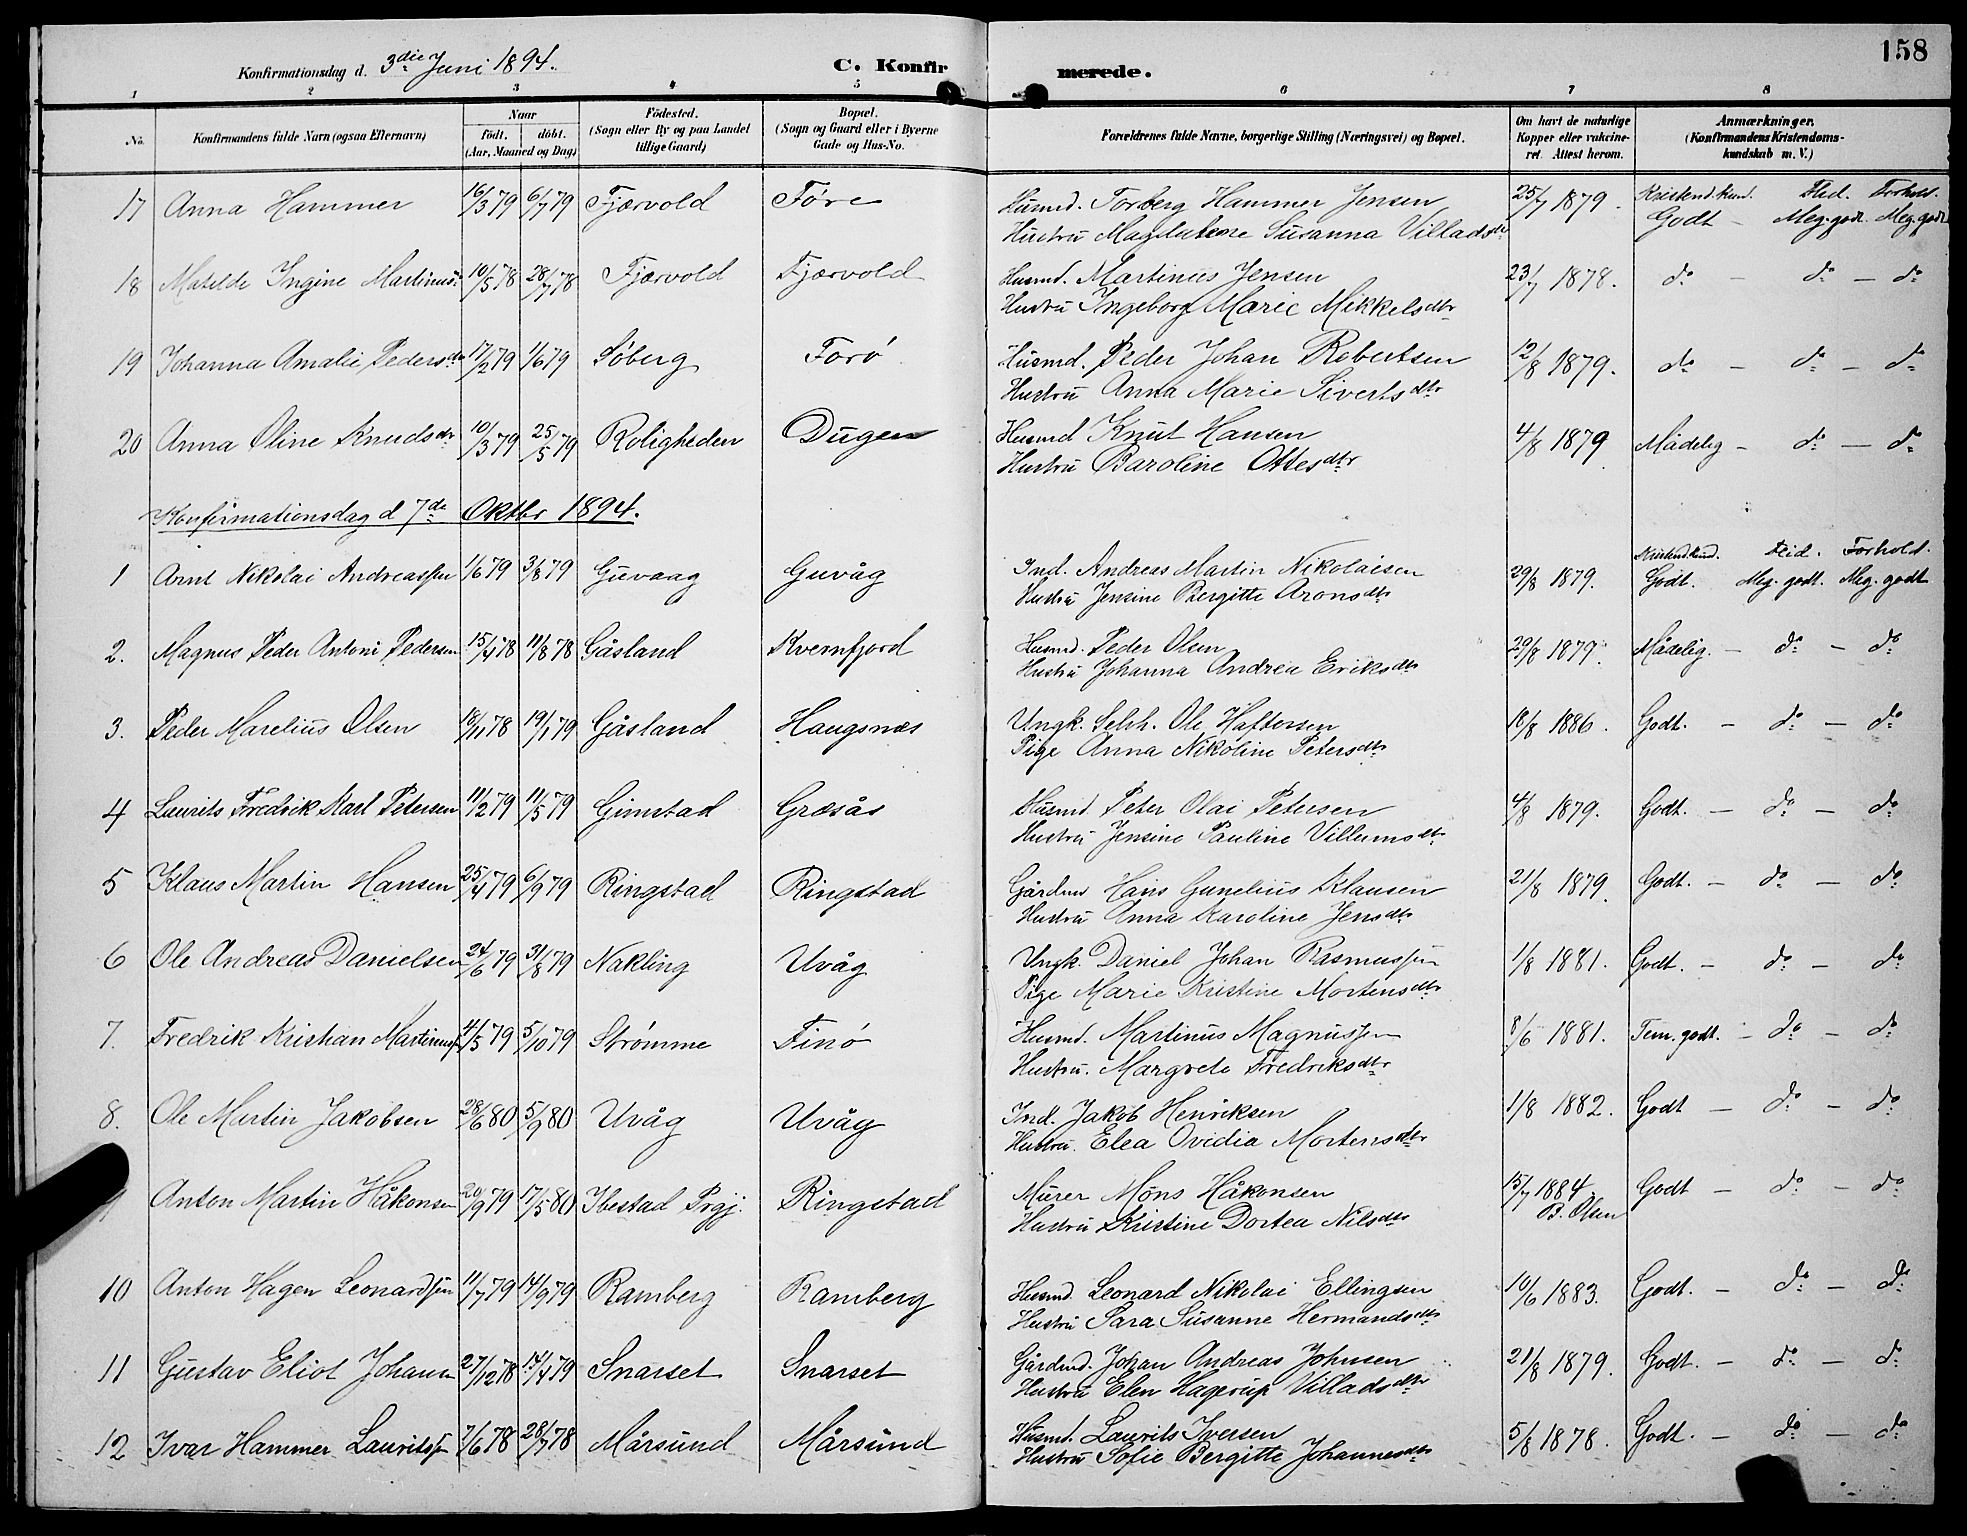 158
Konfirmationsdag d. 3die Juni 1894.
C. Konfirmerede.
1 2 3 4 5 6 7 8
No. Konfirmandens fulde Navn (ogsaa Efternavn) Naar födt. döbt. (Aar, Maaned og Dag) Födested. (Sogn eller By og paa Landet tillige Gaard) Bopæl. (Sogn og Gaard eller i Byerne Gade og Hus-No. Forældrenes fulde Navne, borgerlige Stilling (Næringsvei) og Bopæl. Om havt de naturlige Kopper eller vakcineret. Attest herom. Anmærkninger. (Konfirmandens Kristendomskundskab m. V.)
Kristend.kund. Flid. Forhold.
17 Anna Hammer 16/3 79 6/7 79 Fjærvold Føre Husmd. Torberg Hammer Jensen 25/7 1879. Godt - Meg. godt. Meg. godt
Hustru Magdalene Susanna Villadsdtr
18 Matilde Ingine Martinus: 10/5 78 28/7 78 Fjærvold Fjærvold Husmd. Martinus Jensen 23/7 1878. do - do - do
Hustru Ingeborg Marie Mikkelsdtr
19 Johanna Amalie Pedersdtr 17/2 79 1/6 79 Søberg Forø Husmd. Peder Johan Robertsen 12/8 1879. do - do - do
Hustru Anna Marie Sivertsdtr
20 Anna Oline Knudsdtr 10/3 79 25/5 79 Roligheden Dugen Husmd Knut Hansen 4/8 1879 Mådelig - do - do
Hustru Baroline Ottesdtr
Konfirmationsdag d 7de Oktbr 1894.
Kristend.kund. Flid. Forhold.
1 Arnt Nikolai Andreassen 1/6 79 3/8 79 Guvaag Guvåg Ind. Andreas Martin Nikolaisen 29/8 1879. Godt. Meg. godt. Meg. godt
Hustru Jensine Bergitte Aronsdtr
2. Magnus Peder Antoni Pedersen 15/4 78 11/8 78 Gåsland Kvernfjord Husmd. Peder Olsen 29/8 1879. Mådelig. - do - do
Hustru Johanna Andrea Eriksdtr
3. Peder Marelius Olsen 18/11 78 19/1 79 Gåsland Haugsnæs Ungk. Selvh. Ole Haftorsen 18/8 1886. Godt. - do - do
Pige Anna Nikoline Petersdtr
4 Laurits Fredrik Karl Petersen 11/2 79 11/5 79 Gimstad Græsås Husmd. Peter Olai Petersen 4/8 1879. Godt. - do - do
Hustru Jensine Pauline Villumsdtr
5 Klaus Martin Hansen 25/4 79 6/9 79 Ringstad Ringstad Gårdmd Hans Gunelius Klausen 21/8 1879. Godt. - do - do
Hustru Anna Karoline Jensdtr
6 Ole Andreas Danielsen 24/6 79 31/8 79 Nakling Uvåg Ungk. Daniel Johan Rasmussen 1/8 1881. Godt. - do - do
Pige Marie Kristine Mortensdtr
7. Fredrik Kristian Martinuss 4/5 79 5/10 79 Strømme Finø Husmd. Martinus Magnussen 8/6 1881. Tem. godt. - do - do
Hustru. Margrete Fredriksdtr
8. Ole Martin Jakobsen 28/6 80 5/9 80 Uvåg Uvåg Ind. Jakob Henriksen 1/8 1882. Godt - do - do
Hustru. Elea Ovidia Mortensdtr
9 Anton Martin Håkonsen 20/9 79 17/5 80 Ibestad Prgj. Ringstad Murer Möns Håkonsen 15/7 1884. Godt - do - do
Hustru Kristine Dortea Nilsdtr B. Olsen
10 Anton Hagen Leonardsen 11/7 79 14/9 79 Ramberg Ramberg Husmd. Leonard Nikolai Ellingsen 10/6 1883. Godt. - do - do
Hustru Sara Susanne Hermandsdtr
11 Gustav Eliot Johans 27/12 78 14/4 79 Snarset Snarset Gårdmd. Johan Andreas Johnsen 21/8 1879. Godt. - do - do
Hustru Elen Hagerup Villadsdtr
12 Ivar Hammer Lauritssen 7/6 78 28/7 78 Mårsund Mårsund Husmd. Laurits Iversen 5/8 1878. Godt. - do - do
Hustru Sofie Bergitte Johannesdtr